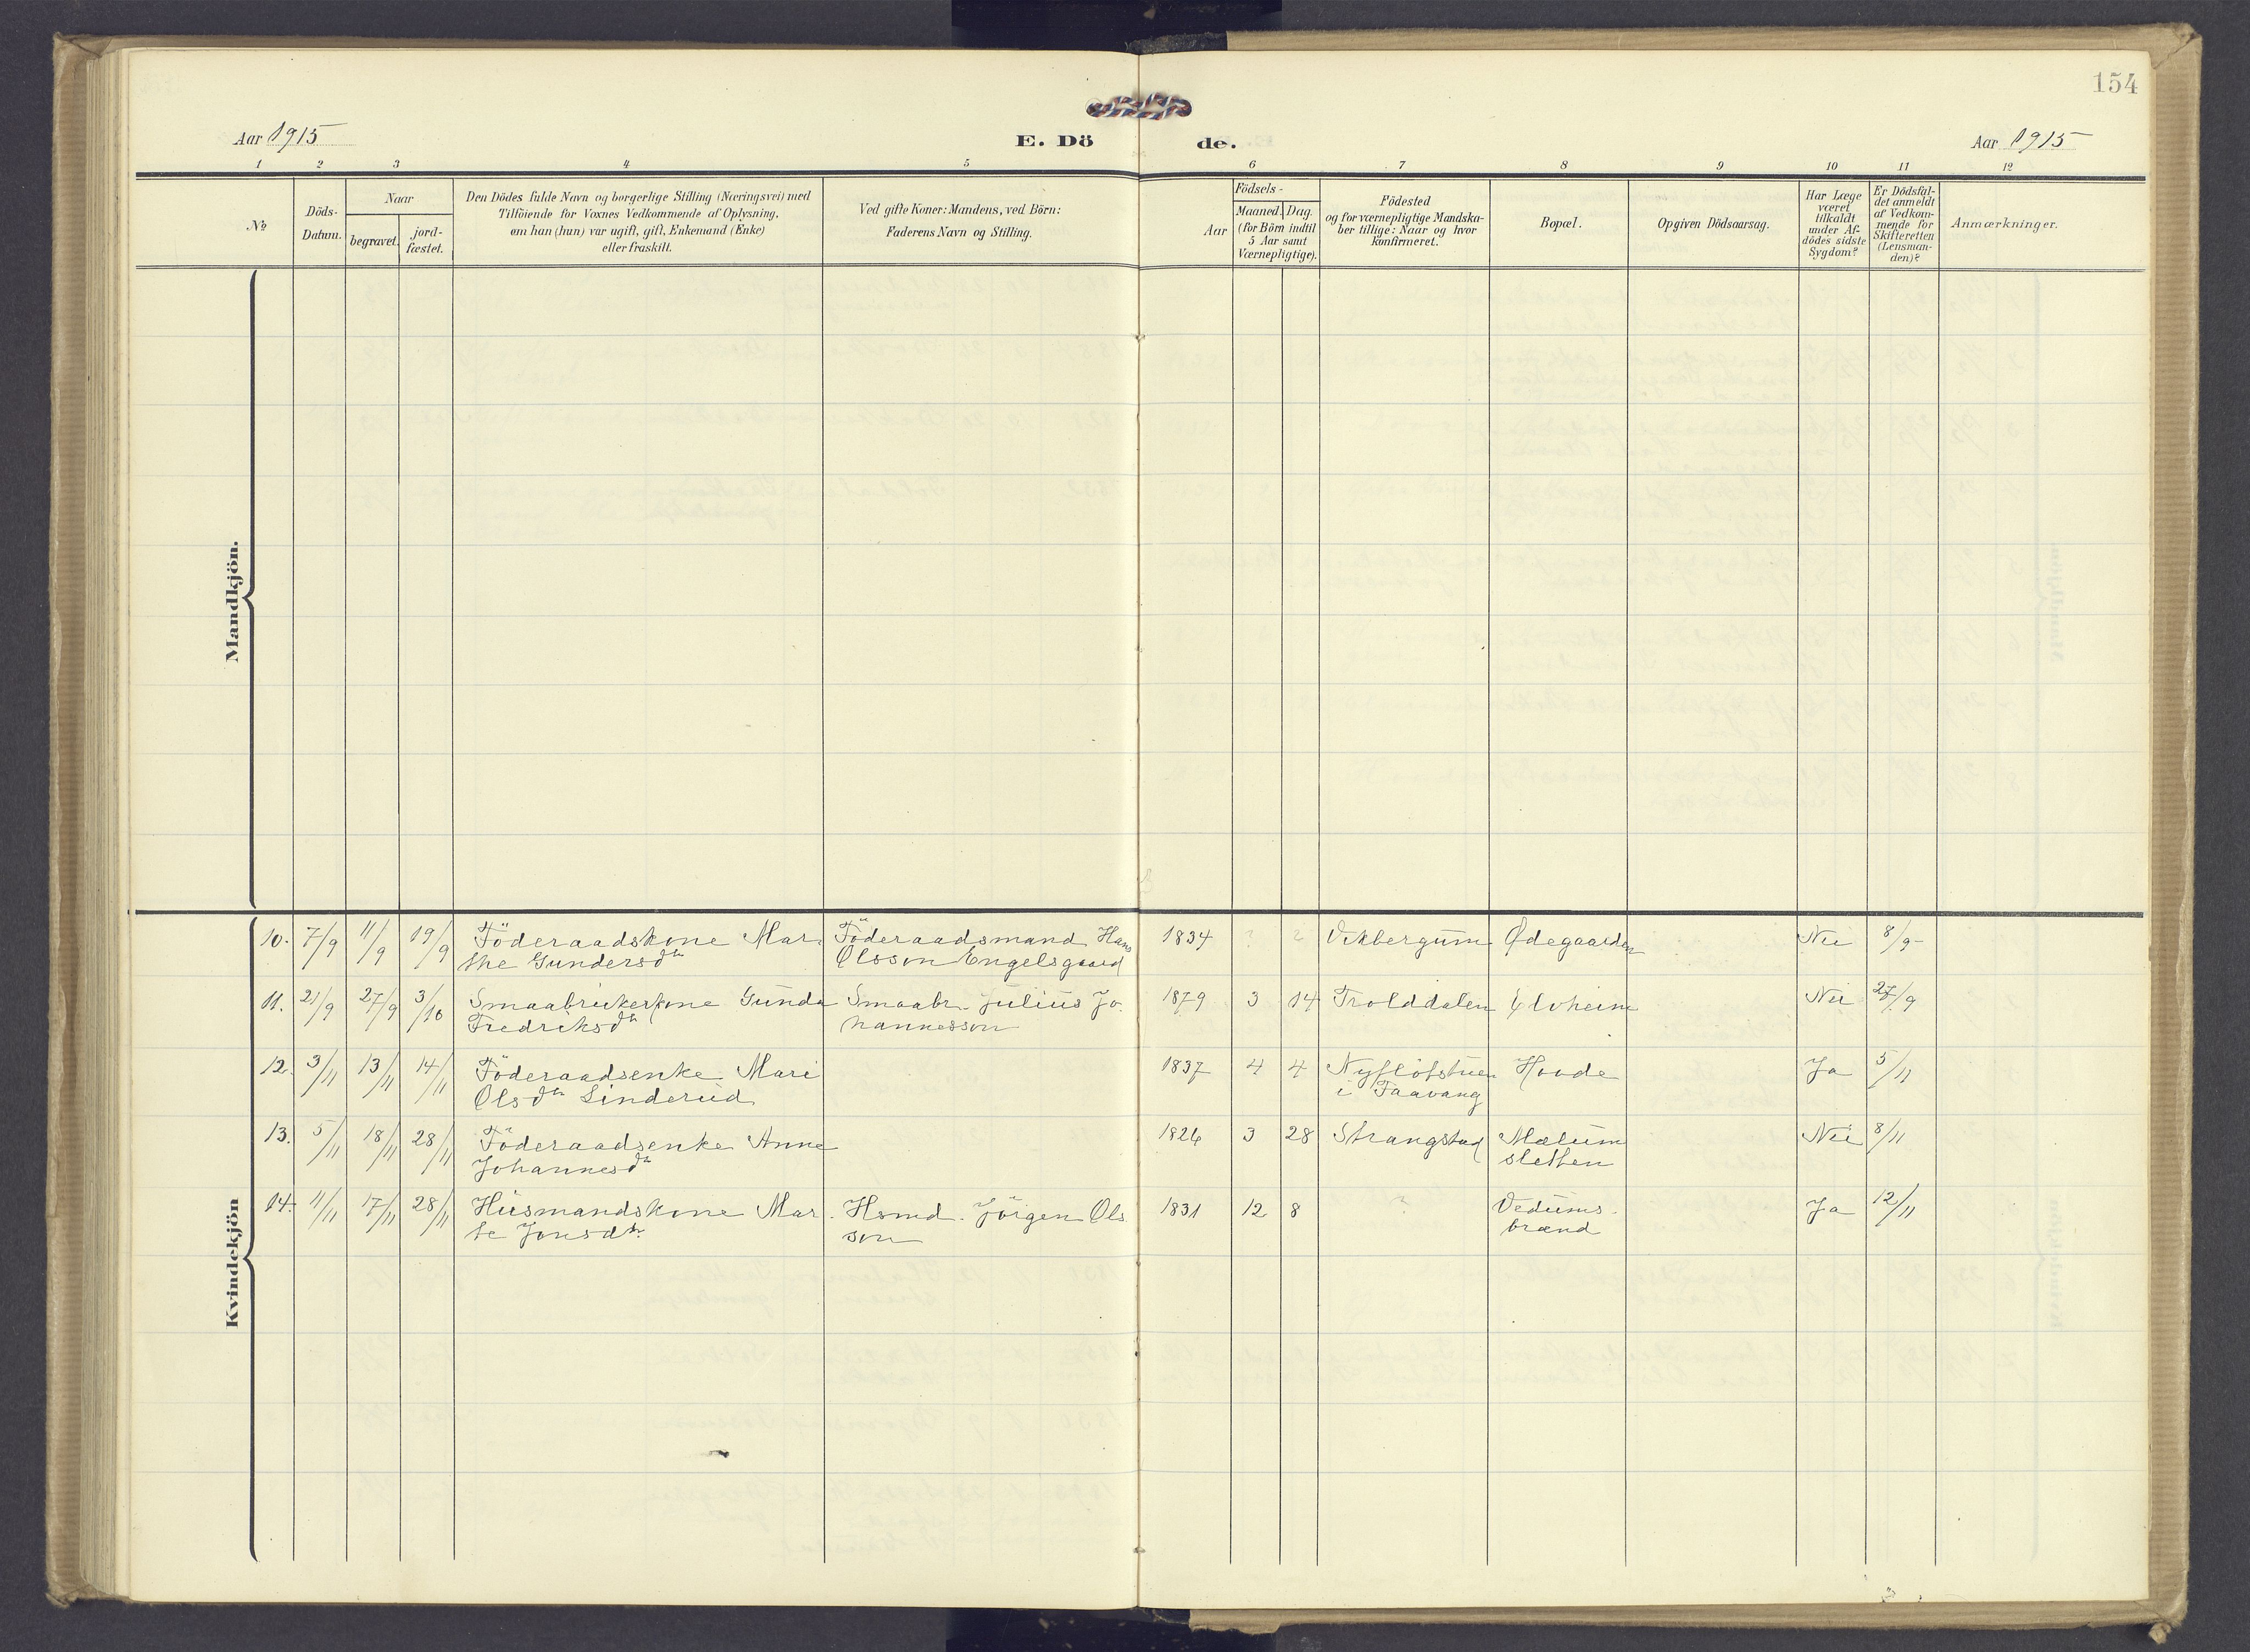 154
Aar 1915
E. Dö de.
Aar 1915
1 2 3 4 5 6 7 8 9 10 11 12
No
Döds-
Datum.
Naar
begravet.
jord-
fæstet.
Den Dödes fulde Navn og borgerlige Stilling (Næringsvei) med
Tilföiende for Voxnes Vedkommende af Oplysning,
om han (hun) var ugift, gift, Enkemand (Enke)
eller fraskilt.
Ved gifte Koner: Mandens, ved Börn:
Faderens Navn og Stilling.
Födsels-
Aar
Maaned. Dag.
(for Börn indtil
5 Aar samt
Værnepligtige).
Födested
og for værnepligtige Mandska-
ber tillige: Naar og hvor
konfirmeret.
Bopæl.
Opgiven Dödsaarsag.
Har Læge
været
tilkaldt
under Af-
dödes sidste
Sygdom?
Er Dödsfal-
det anmeldt
af Vedkom-
mende for
Skifteretten
(Lensman-
den)?
Anmærkninger.
Mandkjön.
Kvindekjön
10. 7/9 11/9 19/9 Föderaadskone Mar- Föderaadsmand Hans 1834 ? ? Vikbergum Ødegaarden Nei 8/9
the Gundersdtr Olsson Engelsgaard
11. 21/9 27/9 3/10 Smaabrukerkone Gunda Smaabr. Julius Jo- 1879 3 14 Trolddalen Elvheim Nei 27/9
Fredriksdtr hannesson
12. 3/11 13/11 14/11 Föderaadsenke Mari 1837 4 4 Nyflötstuen Hovde Ja 5/11
Olsdtr Linderud i Faavang
13. 5/11 18/11 28/11 Föderaadsenke Anne 1826 3 28 Strangstad Mælum Nei 8/11
Johannesdtr sletten
14. 11/11 17/11 28/11 Husmandskone Mar- Hsmd. Jörgen Ols- 1831 12 8 ? Vedums- Ja 12/11
te Jonsdtr. son brænd